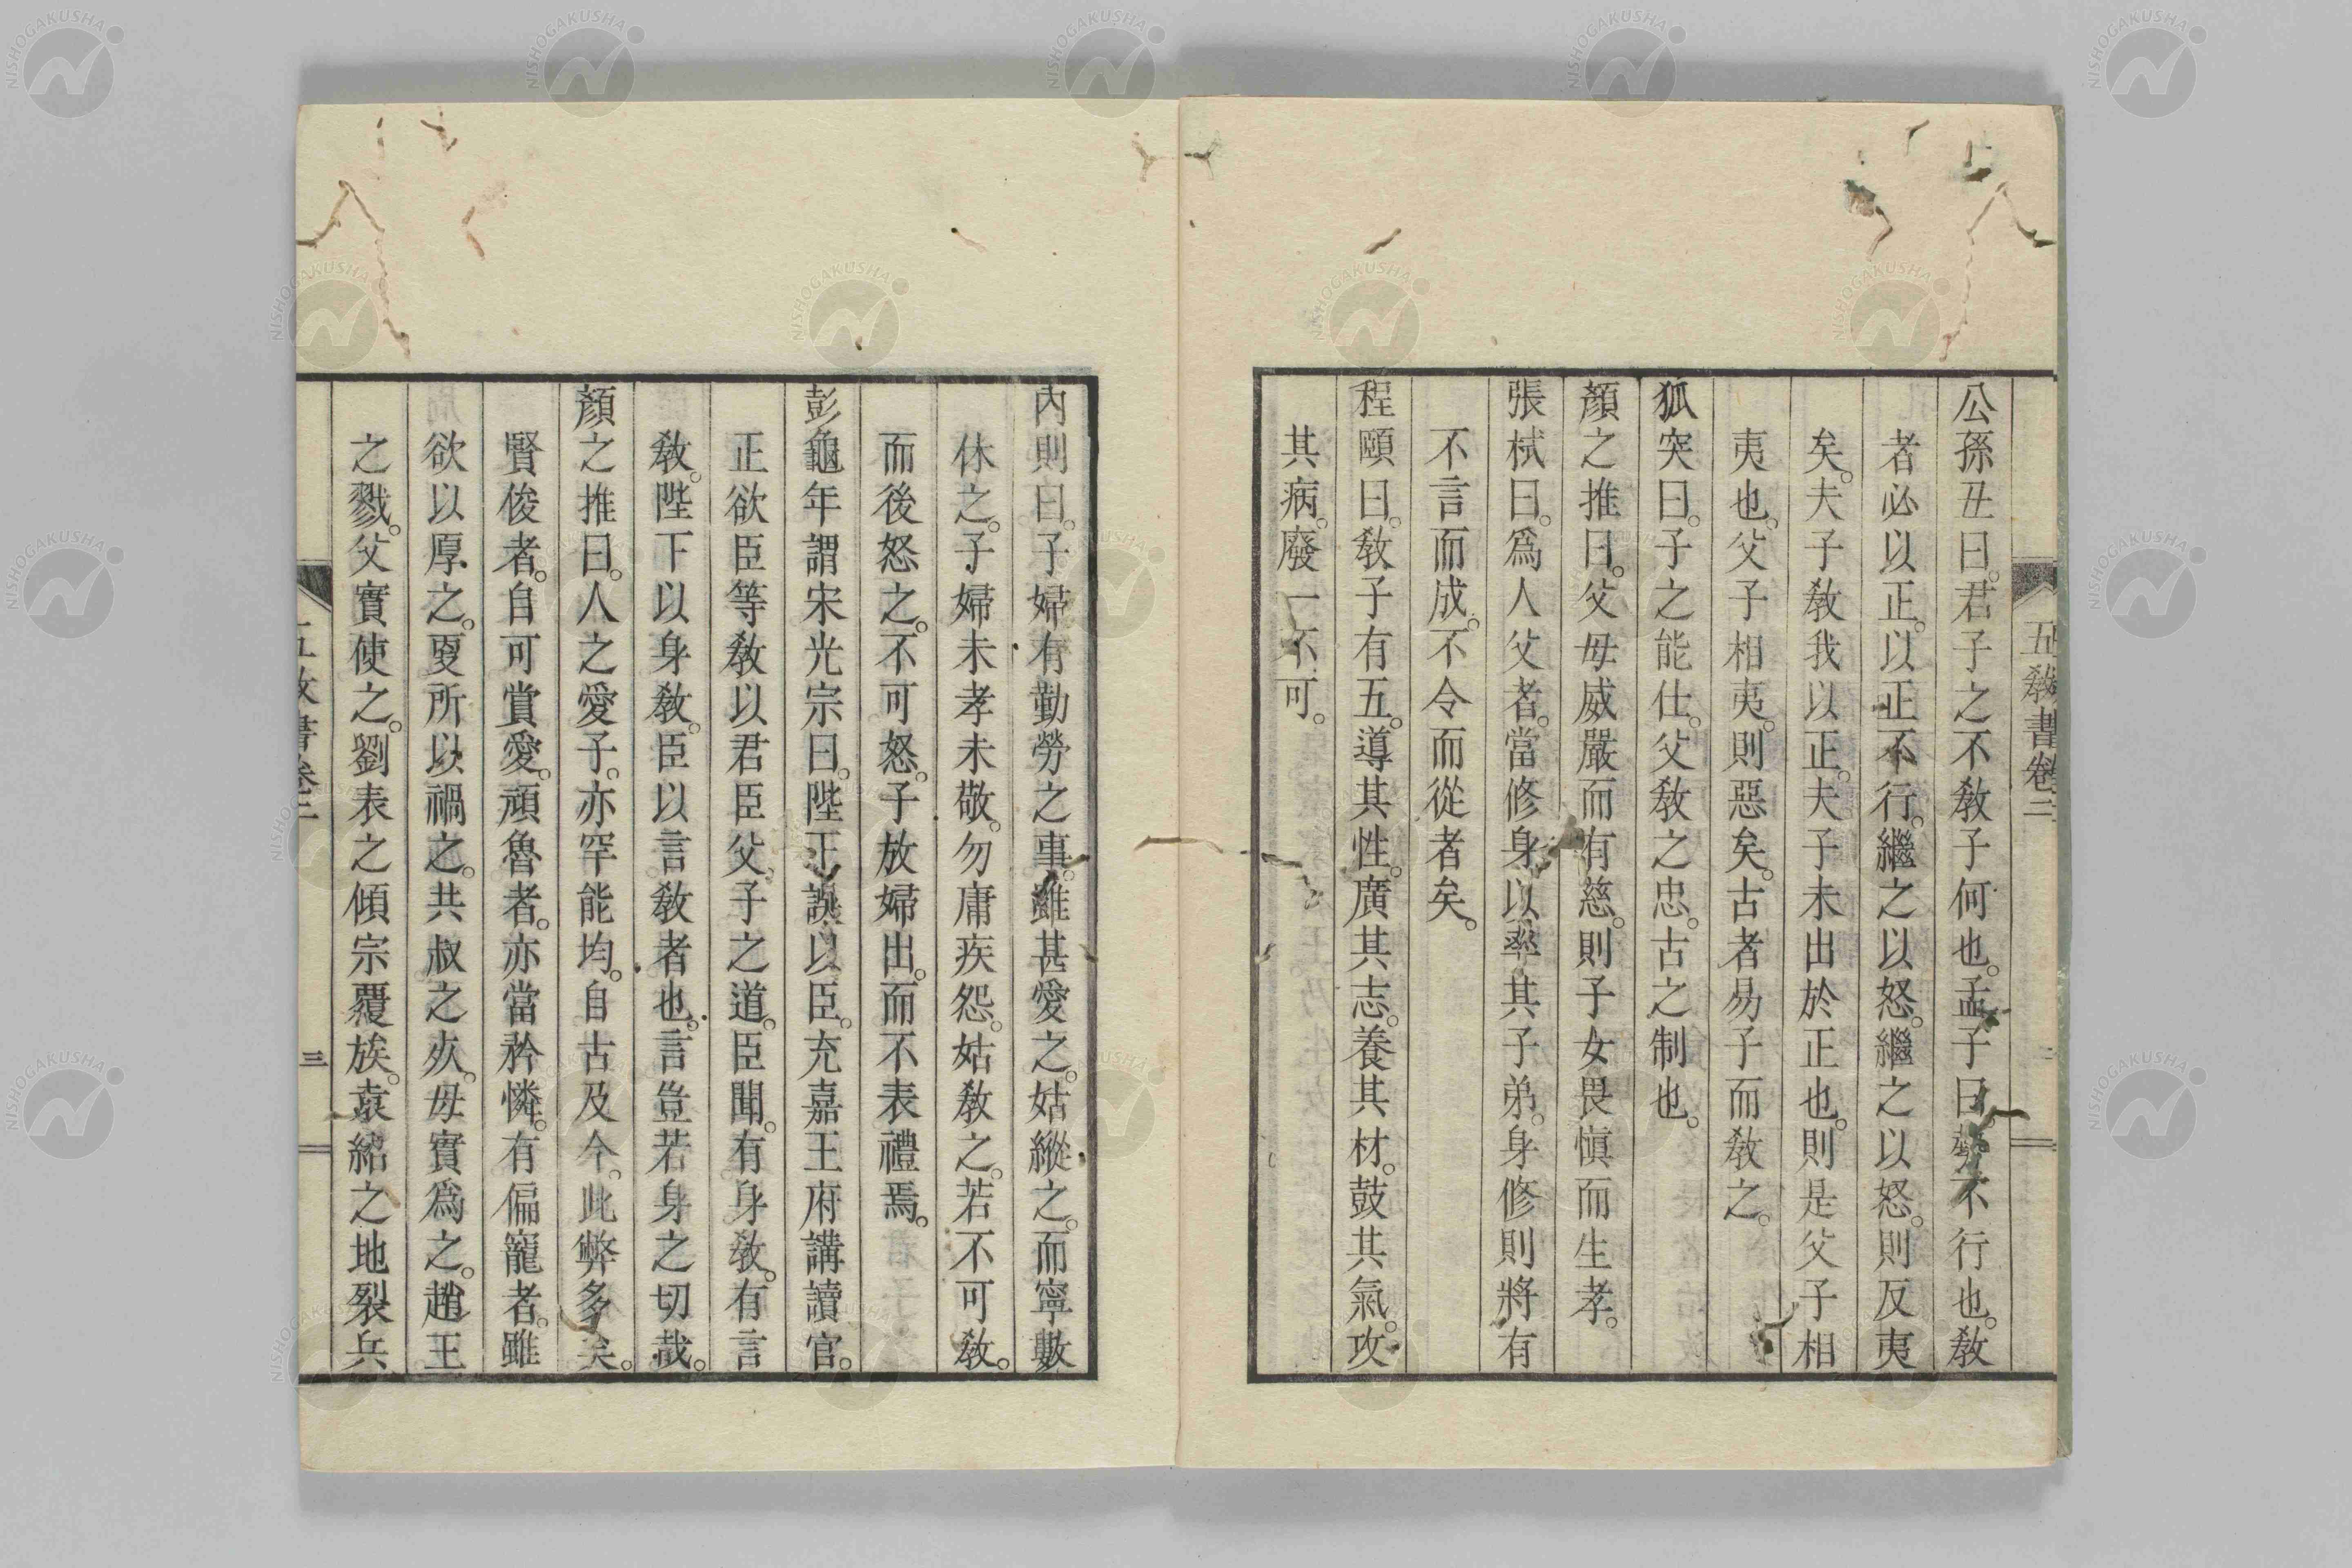 五敎書卷二
公孫丑曰。君子之不敎子何也。孟子曰。勢不行也。敎
者必以正。以正不行。繼之以怒。繼之以怒。則反夷
矣。夫子敎我以正。夫子未出於正也。則是父子相
夷也。父子相夷。則惡矣。古者易子而敎之。
狐突曰。子之能仕。父敎之忠。古之制也。
顏之推曰。父母威嚴而有慈。則子女畏愼而生孝。
張栻曰。爲人父者。當修身以率其子弟。身修則將有
不言而成。不令而從者矣。
程頤曰。敎子有五。導其性。廣其志。養其材。鼓其氣。攻
其病。廢一不可。
內則曰。子婦有勤勞之事。雖甚愛之。姑縱之。而寧數
休之。子婦未孝未敬。勿庸疾怨。姑敎之。若不可敎。
而後怒之。不可怒。子放婦出。而不表禮焉。
彭龜年謂宋光宗曰。陛下誤以臣。充嘉王府講讀官。
正欲臣等敎以君臣父子之道。臣聞。有身敎。有言
敎。陛下以身敎。臣以言敎者也。言豈若身之切哉。
顏之推曰。人之愛子。亦罕能均。自古及今。此弊多矣。
賢俊者。自可賞愛。頑魯者。亦當矜憐。有偏寵者。雖
欲以厚之。更所以禍之。共叔之死。母實爲之。趙王
之戮。父實使之。劉表之傾宗覆族。袁紹之地裂兵
三
NISHOGAKUSHA